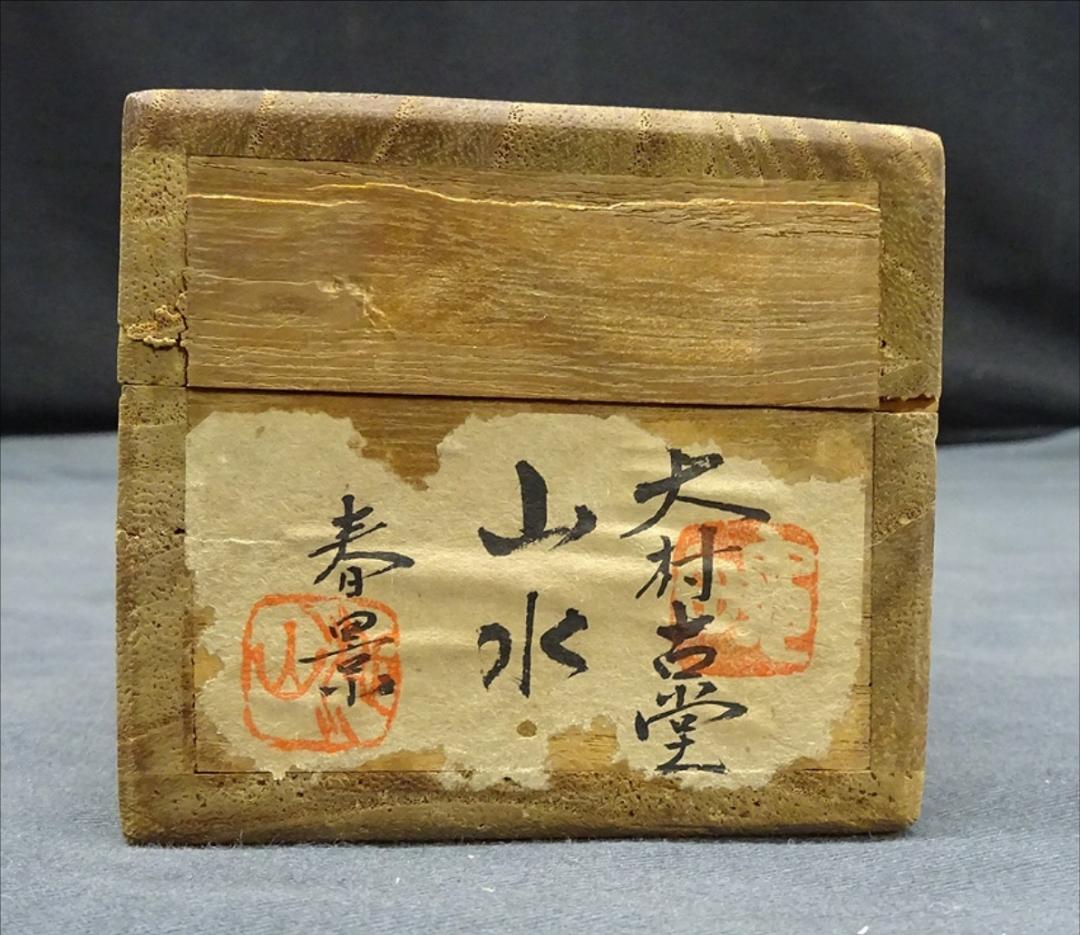 大村古堂
山水
春景